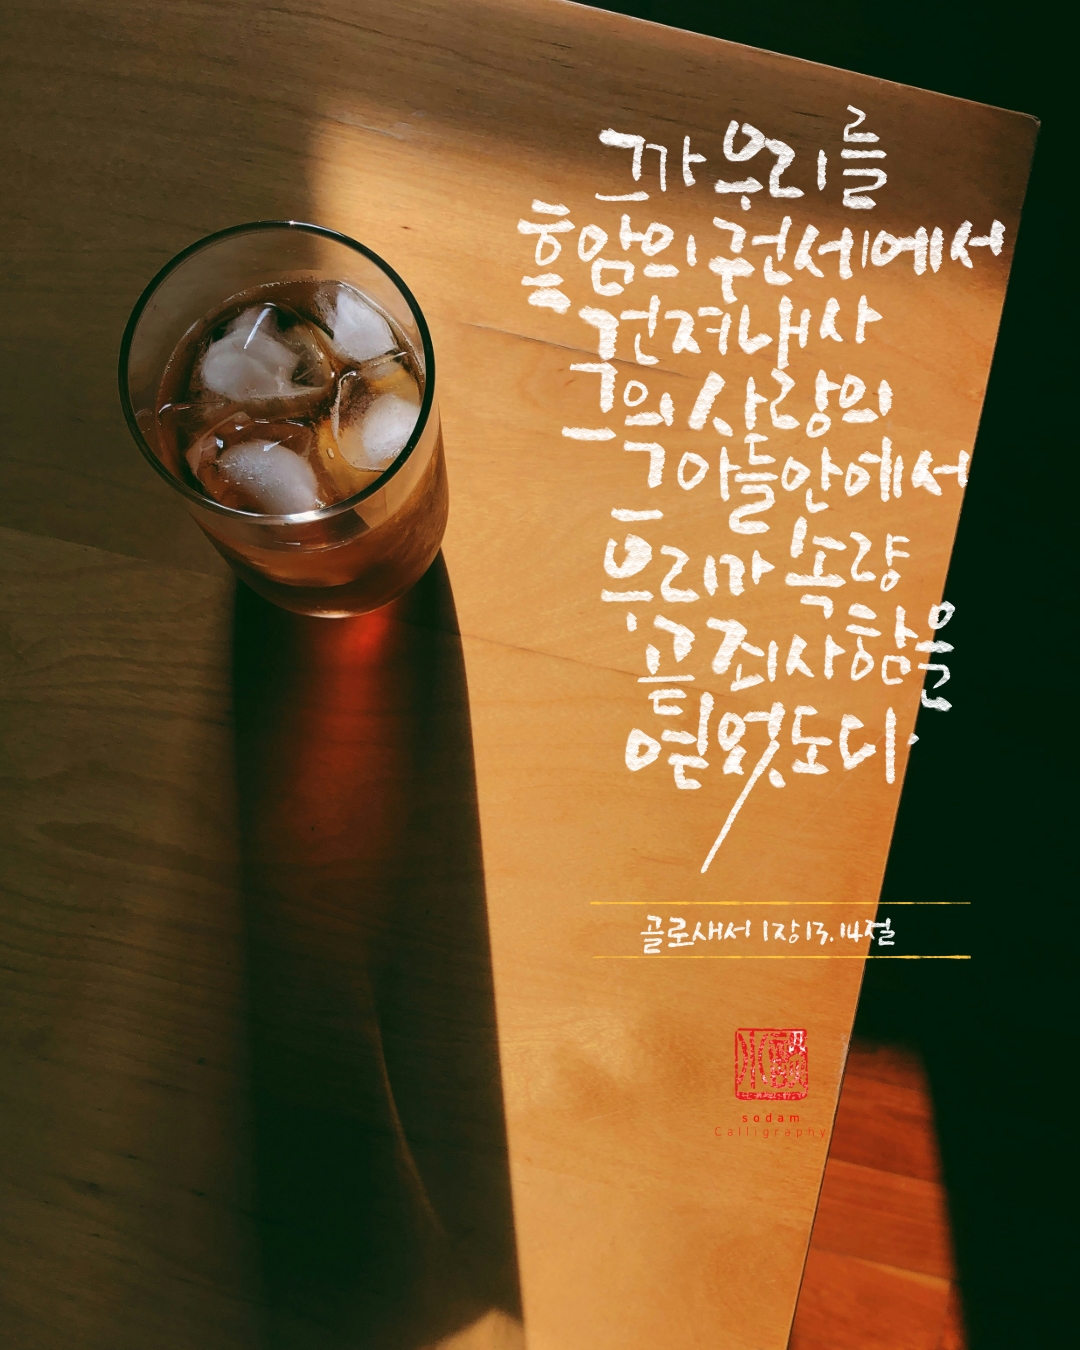 그가 우리를
흑암의 권세에서
건져내사
그의 사랑의
그 아들 안에서
우리가 속량
곧 죄 사함을
얻었도다.
골로새서 1장 13. 14절
sodam
Calligraphy